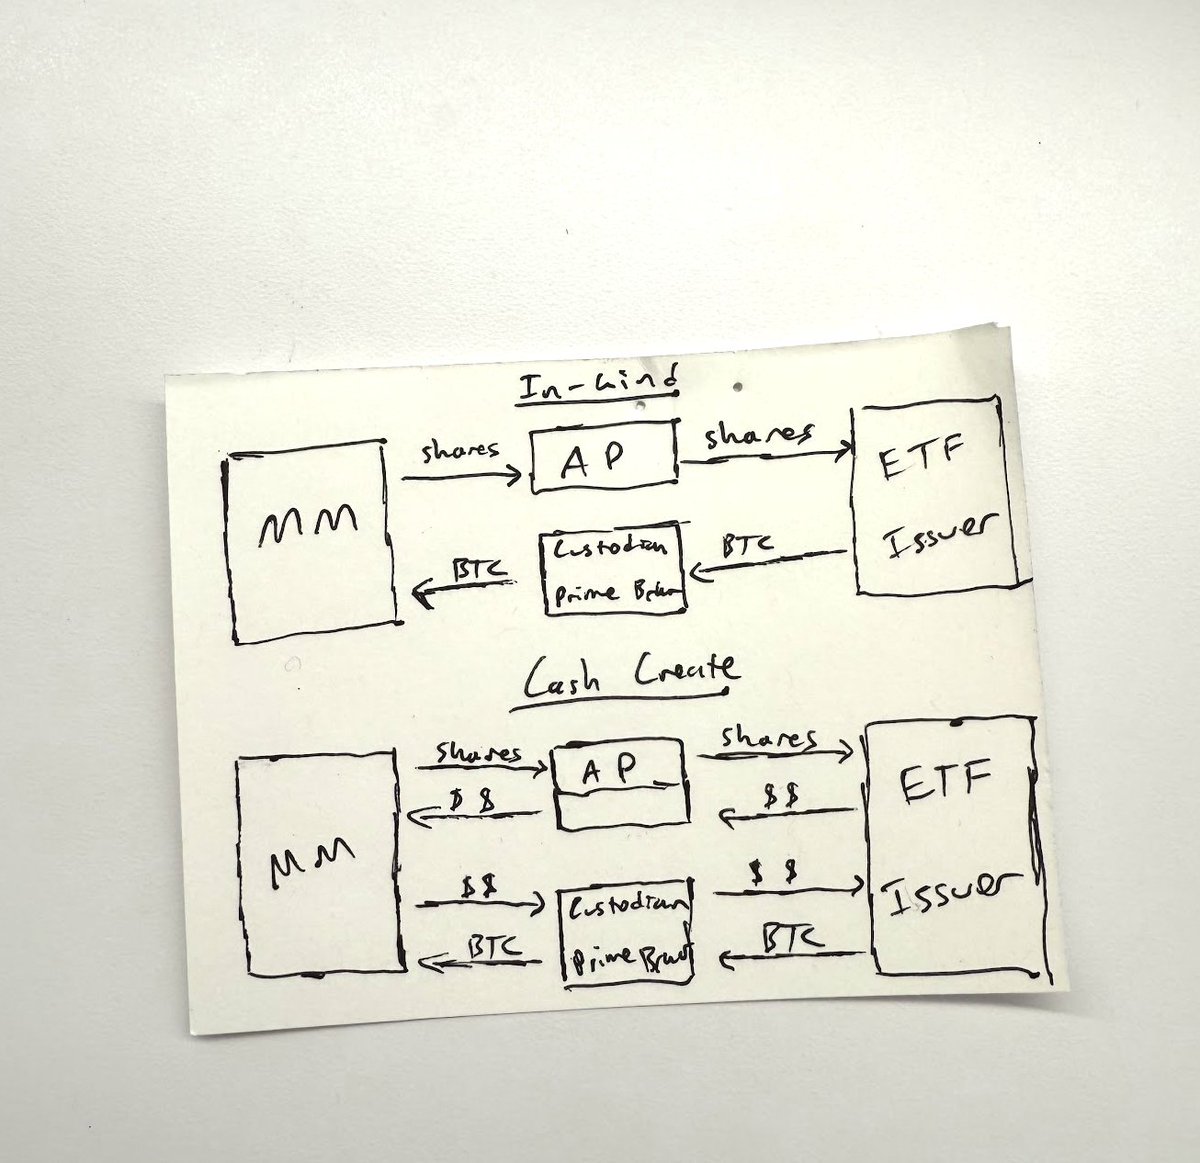 In-kind
shares
AP
shares
MM
ETF
Issuer
BTC
Custodian
Prime
BTC
Cash Create
shares
AP
shares
$$
$$
MM
ETF
Issuer
$$
Custodian
$$
BTC
Prime
BTC